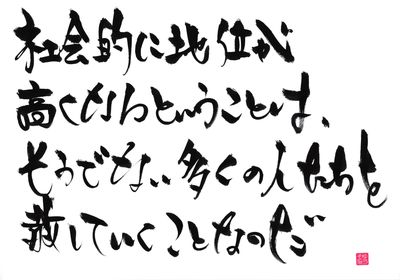 社会的に地位が
高くなるということは、
そうでない多くの人たちを
赦していくことなのだ